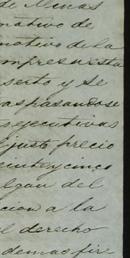 de Minas
motivo de
motivo de la
impresvista
serto y se
aspasandose
s ejecutivas
justo precio
ciente y cinco
lgan del
cion a la
el derecho
demas fir